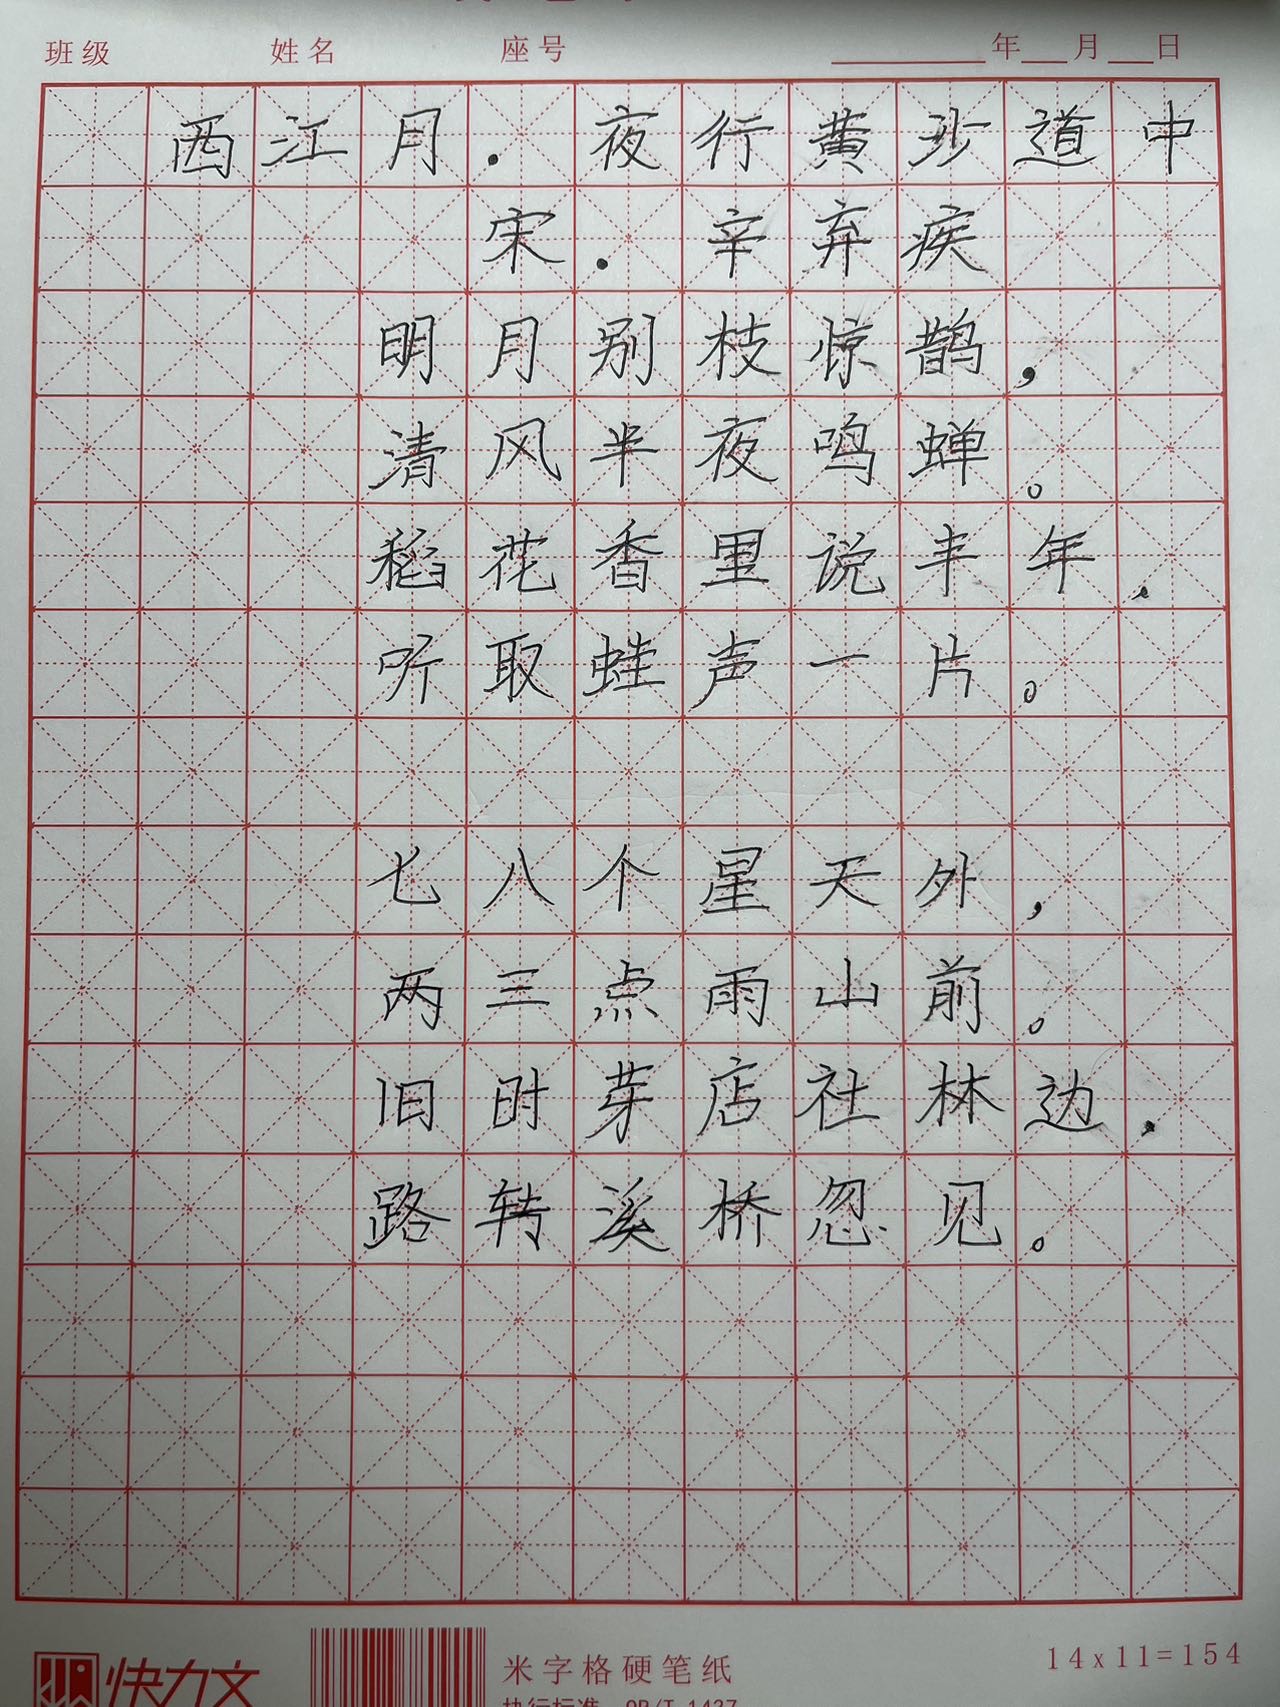 班级 姓名 座号 年 月 日
西江月·夜行黄沙道中
宋·辛弃疾
明月别枝惊鹊，
清风半夜鸣蝉。
稻花香里说丰年，
听取蛙声一片。
七八个星天外，
两三点雨山前。
旧时芽店社林边，
路转溪桥忽见。
快力文
米字格硬笔纸
14x11=154
执行标准 QB/T 1437